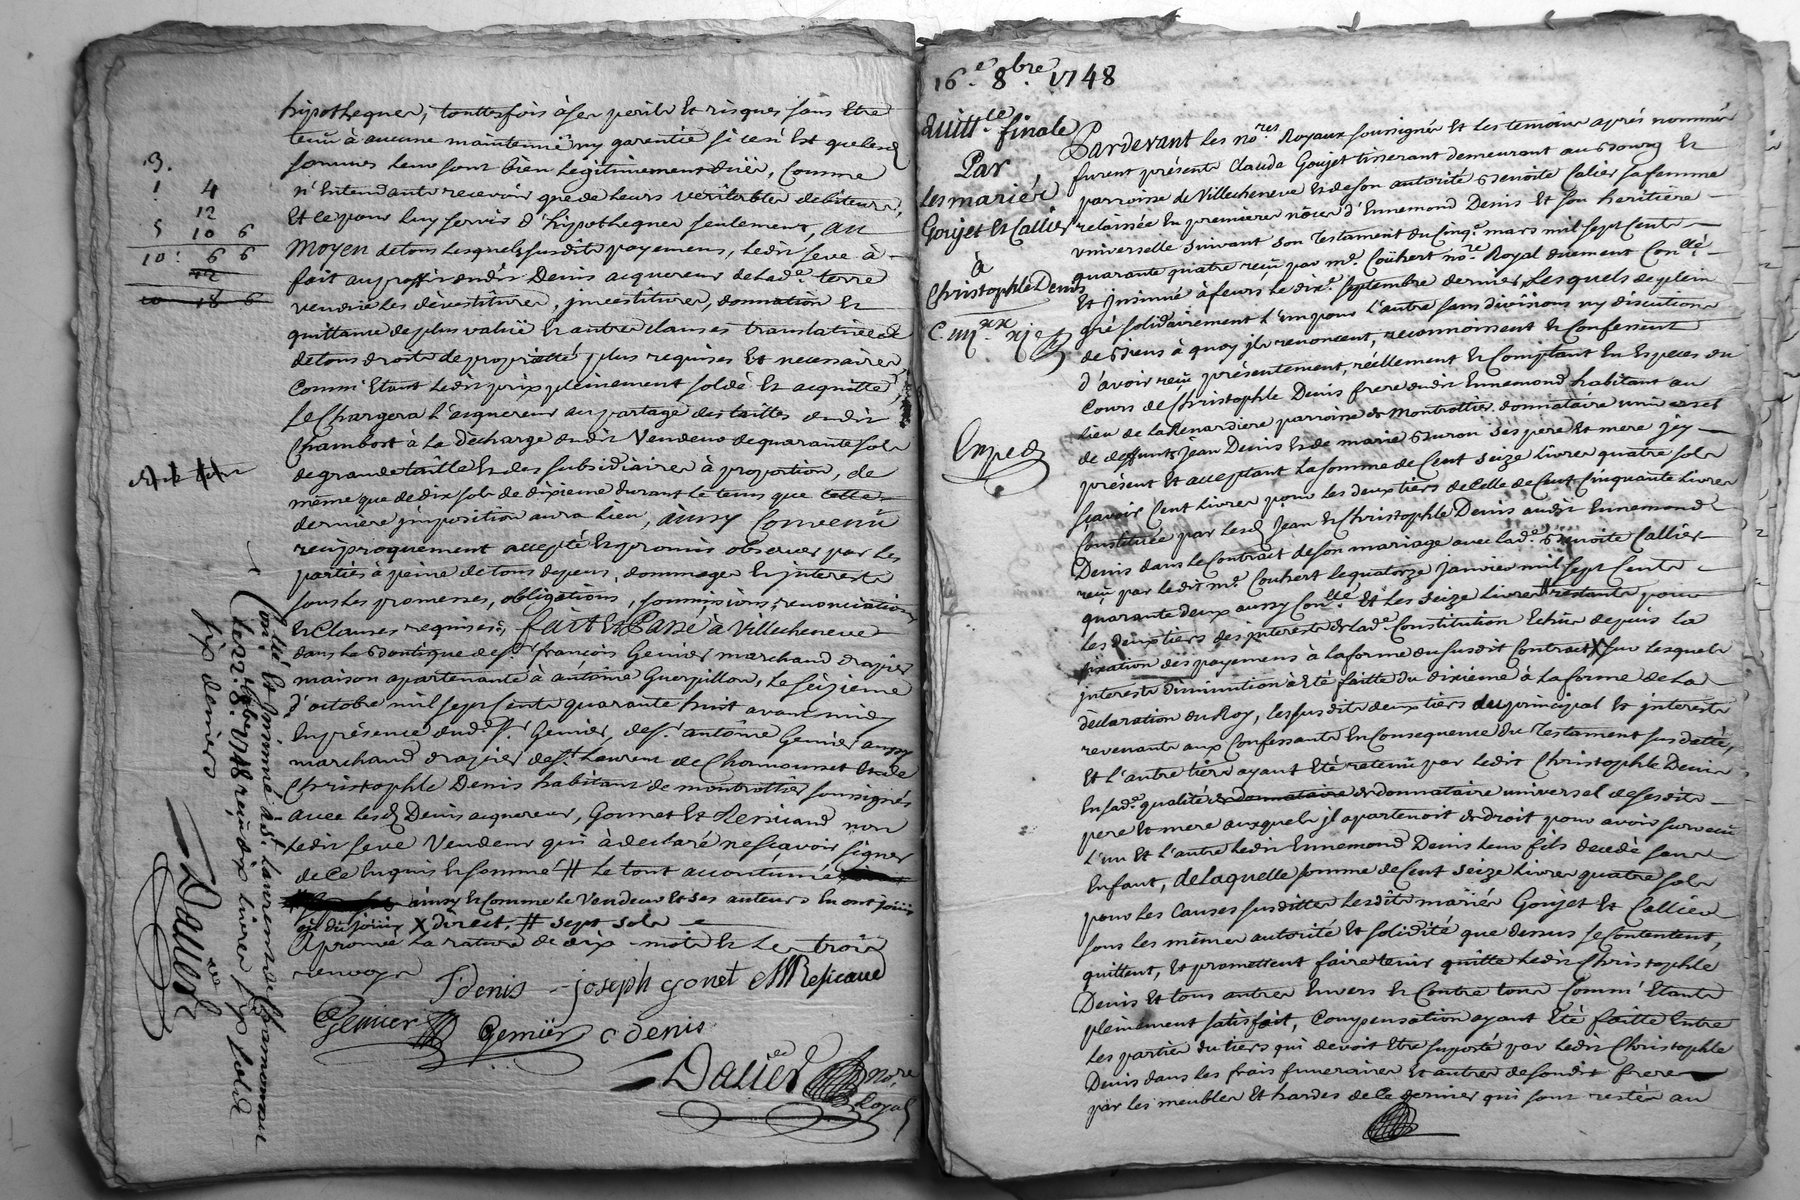 hipothequer, touttesfois à ses perils et risques sans etre
tenu à aucune maintenüe ny garentie si ce n'est que lesd
sommes leurs sont bien legitimement düës, comme
n'entendants recevoir que de leurs veritables debiteurs,
et ce pour luy servir d'hipotheque seulement, au
moyen de tous lesquels susdits payements, ledit Seve à
fait au proffit dudit Denis acquereur de lad.e terre
vendüe les devestiture, jnvestiture, donnation et
quittance de plus valuë et autres clauses translatives de
de tous droits de proprietté plus requises et necessaires
comm'etant ledit prix pleinement soldé et acquitté,
se chargera l'acquereur au partage des tailles dudit
Chambost à la decharge dudit vendeur de quarante sols
de grande taille et des subsidiaires à proportion, de
même que de dix sols de dixieme durant le tems que cette
derniere jmposition aura lieu, ainsy convenu
reciproquement accepté et promis observer par les
parties à peine de tous depens, dommages et jnterests
sous les promesses, obligations, soumissions, renonciations
et clauses requises, fait et passé à Villecheneve
dans la boutique de s.r françois Gemier marchand drapier
maison apartenante à antoine Guerpillon, le seizieme
d'octobre mil sept cents quarante huit avant midy
en présence dud.t s.r Gemier, de s.r antoine Gemier aussy
marchand drapier de s.t Laurent de Chamousset et de
Christophle Denis habitant de montrottier soussignés
avec lesd Denis acquereur, Gonnet et Resicaud non
ledit Seve vendeur qui à declaré ne sçavoir signer
de ce enquis et sommé # le tout accoutumé
ainsy et comme le vendeur et ses auteurs en ont joüis
X direct, # sept sols
Aprouvé la rature de dix mots et les trois
renvoys
J denis joseph gonet M Resicaud
Gemier Gemier c denis
Dalier no.re
Royal
3.
1 4
12
5 10 6
10: 6 6
12
10 18 6
Collé et jnsinué à s.t laurent de chamousset
le 22. 8bre 1748 reçu dix livres six sols
six deniers
Dalier
16.e 8.bre 1748
Quitt.ce finale
Par
les mariés
Goujet et Callier
à
Christophle Denis
C. iiij.xx xj
Exped
Pardevant les no.res Royaux soussigné et les temoins aprés nommés
furent présents Claude Goujet tisserant demeurant au Bourg et
parroisse de Villecheneve et de son autorité Benoite Calier sa femme
relaissée en premieres nôces d'Ennemond Denis et son heritiere
universelle suivant son testament du cinq.e mars mil sept cents
quarante quatre reçu par m.e Couhert no.re Royal duement Con.llé
et jnsinué à feurs le dix.e septembre dernier, Lesquels de plein
gré solidairement l'un pour l'autre sans divisions ny discutions
de biens à quoy jls renoncent, reconnoissent et confessent
d'avoir reçu présentement, réellement et comptant en especes du
cours de Christophle Denis frere dudit Ennemond habitant au
lieu de la Renardiere parroisse de Montrottier donnataire universel
de deffunts Jean Denis et de marie Buron ses pere et mere jcy
présent et acceptant la somme de cent seize livres quatre sols
sçavoir cent livres pour les deux tiers de celle de cent cinquante livres
constituée par lesd Jean et Christophle Denis audit Ennemond
Denis dans le contrait de son mariage avec lad.e Benoite Callier
reçu par ledit m.e Couhert le quatorze janvier mil sept cents
quarante deux aussy Con.llé et les seize livres # restants pour
les deux tiers des jnterests de lad.e Constitution echus depuis la
fixation des payemens à la forme du susdit contrait X sur lesquels
jnterests diminution à eté faitte du dixieme à la forme de la
déclaration du Roy, lesdits deux tiers du principal et jnterests
revenants aux confessants en consequence du testament susdatté,
et l'autre tiers ayant eté retenu par ledit Christophle Denis
en sad.e qualité de donnataire universel de sesdits
pere et mere auxquels jl apartenoit de droit pour avoir survecu
l'un et l'autre ledit Ennemond Denis leur fils decedé sans
enfant, de laquelle somme de cent seize livres quatre sols
pour les causes susdittes lesdits mariés Goujet et Callier
sous les mêmes autorité et solidité que dessus se contentent,
quittent, et promettent faire tenir quitte ledit Christophle
Denis et tous autres envers et contre tous comm'etants
pleinement satisfait, compensation ayant eté faitte entre
les parties du tiers qui devoit etre suporté par ledit Christophle
Denis dans les frais funeraires et autres de sondit frere
par les meubles et hardes de ce dernier qui sont restés au